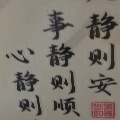 静则安
事静则顺
心静则